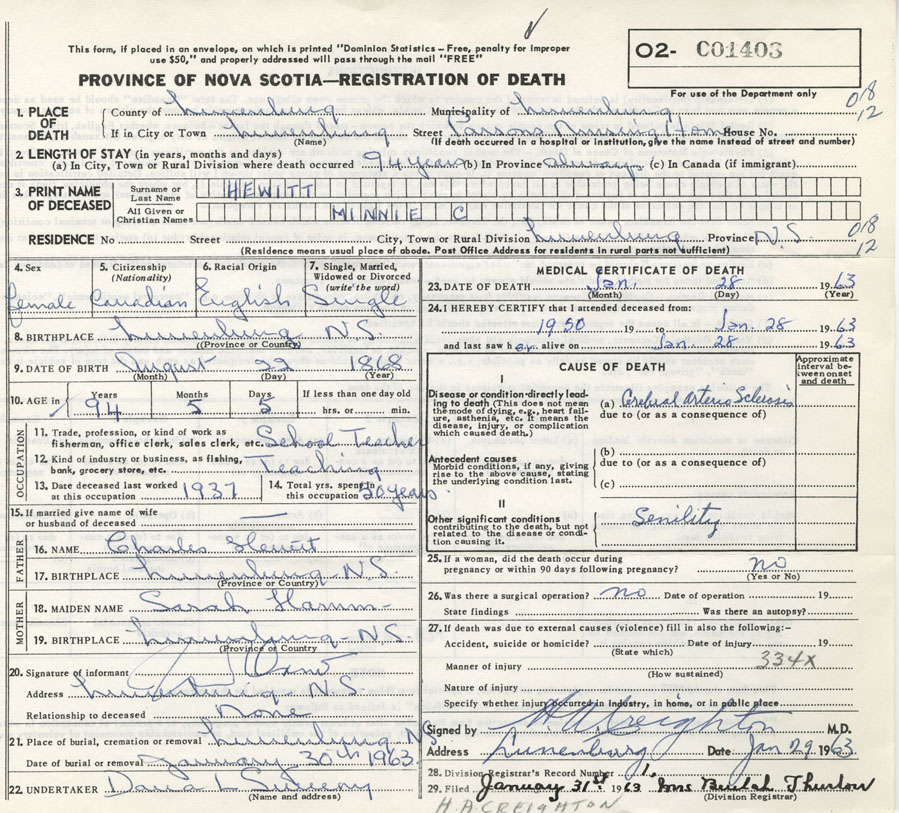 This form, if placed in an envelope, on which is printed "Dominion Statistics – Free, penalty for improper
use $50," and properly addressed will pass through the mail "FREE"
PROVINCE OF NOVA SCOTIA—REGISTRATION OF DEATH
O2- C01403
For use of the Department only
018
12
1. PLACE OF DEATH
County of Lunenburg Municipality of Lunenburg
If in City or Town Lunenburg Street Parsons Nursing Home House No.
(Name) (If death occurred in a hospital or institution, give the name instead of street and number)
2. LENGTH OF STAY (in years, months and days)
(a) In City, Town or Rural Division where death occurred 94 years (b) In Province always (c) In Canada (if immigrant)
3. PRINT NAME OF DECEASED
Surname or Last Name HEWITT
All Given or Christian Names MINNIE C
RESIDENCE No Street City, Town or Rural Division Lunenburg Province N.S.
018
12
(Residence means usual place of abode. Post Office Address for residents in rural parts not sufficient)
4. Sex female
5. Citizenship (Nationality) Canadian
6. Racial Origin English
7. Single, Married, Widowed or Divorced (write the word) Single
8. BIRTHPLACE Lunenburg N.S.
(Province or Country)
9. DATE OF BIRTH August 22 1868
(Month) (Day) (Year)
10. AGE in Years 94 Months 5 Days 5 If less than one day old
hrs. or min.
OCCUPATION
11. Trade, profession, or kind of work as
fisherman, office clerk, sales clerk, etc. School Teacher
12. Kind of industry or business, as fishing,
bank, grocery store, etc. Teaching
13. Date deceased last worked
at this occupation 1937
14. Total yrs. spent in
this occupation 20 years
15. If married give name of wife
or husband of deceased —
FATHER
16. NAME Charles Hewitt
17. BIRTHPLACE Lunenburg N.S.
(Province or Country)
MOTHER
18. MAIDEN NAME Sarah Hamm
19. BIRTHPLACE Lunenburg - N.S.
(Province or Country)
20. Signature of informant
Address Lunenburg - N.S.
Relationship to deceased None
21. Place of burial, cremation or removal Lunenburg NS
Date of burial or removal January 30th 1963
22. UNDERTAKER
(Name and address)
MEDICAL CERTIFICATE OF DEATH
23. DATE OF DEATH Jan. 28 1963
(Month) (Day) (Year)
24. I HEREBY CERTIFY that I attended deceased from:
1950 19 to Jan. 28 1963
and last saw her alive on Jan. 28 1963
CAUSE OF DEATH
Approximate interval between onset and death
I
Disease or condition directly leading to death (This does not mean the mode of dying, e.g., heart failure, asthenia, etc. It means the disease, injury, or complication which caused death.)
(a) Cerebral Arterio Sclerosis
due to (or as a consequence of)
Antecedent causes
Morbid conditions, if any, giving rise to the above cause, stating the underlying condition last.
(b)
due to (or as a consequence of)
(c)
II
Other significant conditions
contributing to the death, but not related to the disease or condition causing it.
Senility
25. If a woman, did the death occur during
pregnancy or within 90 days following pregnancy? no
(Yes or No)
26. Was there a surgical operation? no Date of operation 19
State findings Was there an autopsy?
27. If death was due to external causes (violence) fill in also the following:-
Accident, suicide or homicide? Date of injury 19
(State which)
334x
Manner of injury
(How sustained)
Nature of injury
Specify whether injury occurred in industry, in home, or in public place
Signed by H A Creighton M.D.
Address Lunenburg Date Jan 29 1963
28. Division Registrar's Record Number 1.
29. Filed January 31st 1963 Mrs Beulah Thurlow
(Division Registrar)
H.A CREIGHTON